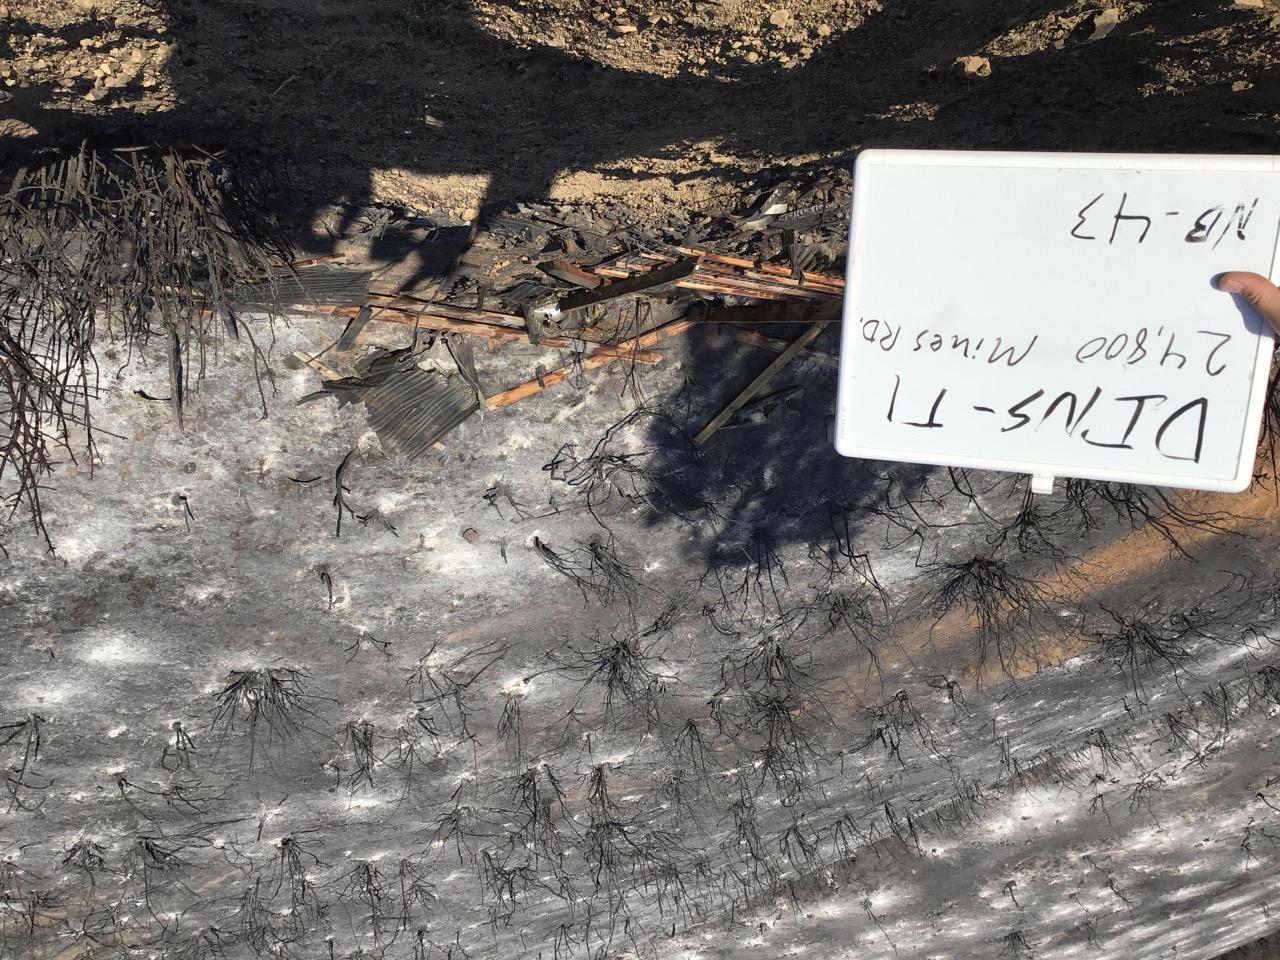 DINS-T1
24,800 Mines RD.
NB-43